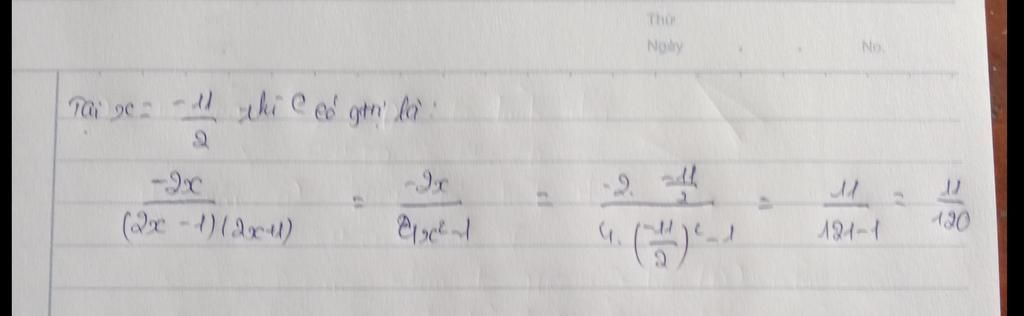 Thứ
Ngày No.
Tại x = -11/2 thì C có gtrị là:
-2x/((2x - 1)(2x+1)) = -2x/(4x²-1) = (-2. -11/2)/(4. (-11/2)² - 1) = 11/(121-1) = 11/120